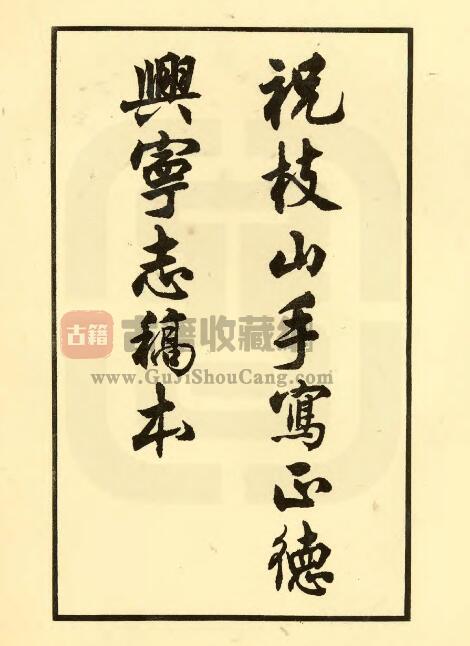 祝枝山手寫正德
興寧志稿本
古籍
古籍收藏
www.GuJiShouCang.com